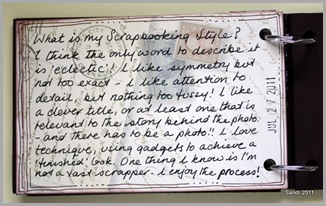 What is my Scrapbooking Style?
I think the only word to describe it
is 'eclectic'! I like symmetry but
not too exact - I like attention to
detail, but nothing too fussy! I like
a clever title, or at least one that is
relevant to the story behind the photo
- and there has to be a photo!! I love
technique, using gadgets to achieve a
'finished' look. One thing I know is I'm
not a fast scrapper - I enjoy the process!
JUL 27 2011
Sandi 2011